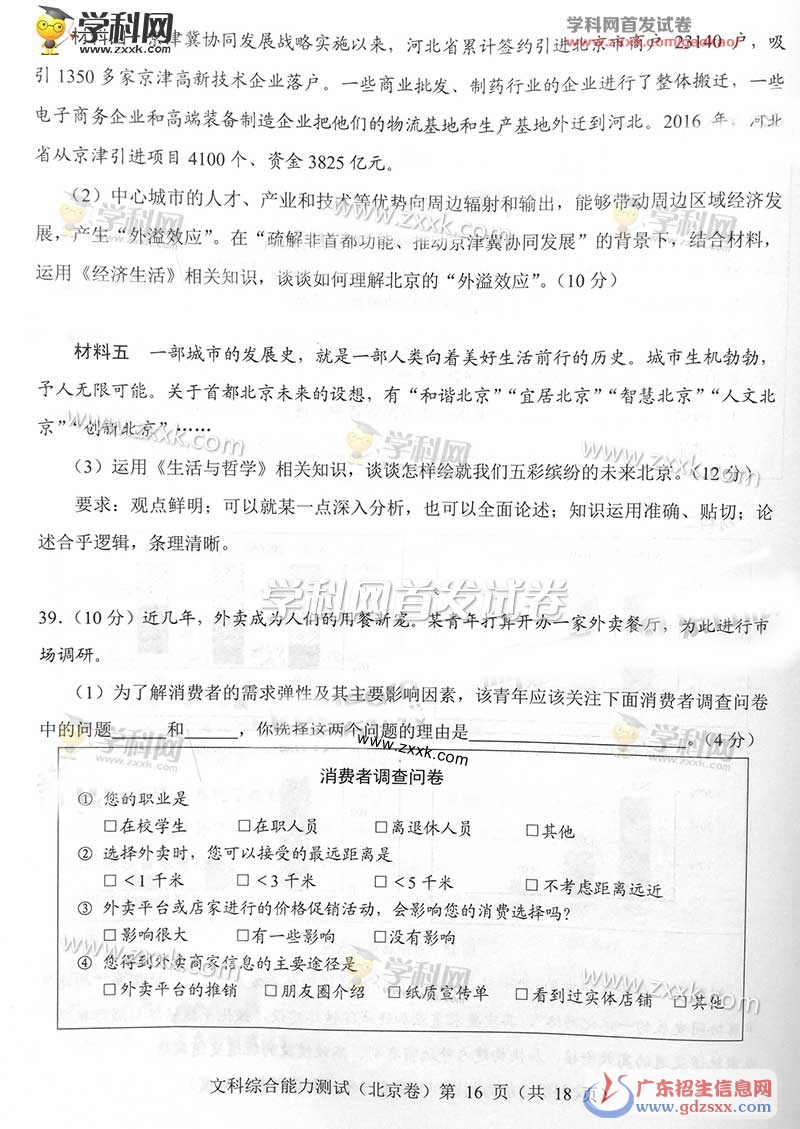 学科网首发试卷
www.zxxk.com/gaokao/
学科网
www.zxxk.com
材料四 京津冀协同发展战略实施以来，河北省累计签约引进北京市商户 23140 户，吸
引 1350 多家京津高新技术企业落户。一些商业批发、制药行业的企业进行了整体搬迁，一些
电子商务企业和高端装备制造企业把他们的物流基地和生产基地外迁到河北。2016 年，河北
省从京津引进项目 4100 个、资金 3825 亿元。
（2）中心城市的人才、产业和技术等优势向周边辐射和输出，能够带动周边区域经济发
展，产生“外溢效应”。在“疏解非首都功能、推动京津冀协同发展”的背景下，结合材料，
运用《经济生活》相关知识，谈谈如何理解北京的“外溢效应”。（10 分）
学科网
www.zxxk.com
学科网
www.zxxk.com
材料五 一部城市的发展史，就是一部人类向着美好生活前行的历史。城市生机勃勃，
予人无限可能。关于首都北京未来的设想，有“和谐北京”“宜居北京”“智慧北京”“人文北
京”“创新北京”……
www.zxxk.com
学科网
www.zxxk.com
（3）运用《生活与哲学》相关知识，谈谈怎样绘就我们五彩缤纷的未来北京。（12 分）
要求：观点鲜明；可以就某一点深入分析，也可以全面论述；知识运用准确、贴切；论
述合乎逻辑，条理清晰。
学科网首发试卷
39.（10 分）近几年，外卖成为人们的用餐新宠。某青年打算开办一家外卖餐厅，为此进行市
场调研。
（1）为了解消费者的需求弹性及其主要影响因素，该青年应该关注下面消费者调查问卷
中的问题______和______，你选择这两个问题的理由是____________________。（4 分）
学科网
www.zxxk.com
学科网
www.zxxk.com
消费者调查问卷
① 您的职业是
□在校学生 □在职人员 □离退休人员 □其他
② 选择外卖时，您可以接受的最远距离是
□＜1 千米 □＜3 千米 □＜5 千米 □不考虑距离远近
③ 外卖平台或店家进行的价格促销活动，会影响您的消费选择吗?
□影响很大 □有一些影响 □没有影响
④ 您得到外卖商家信息的主要途径是
□外卖平台的推销 □朋友圈介绍 □纸质宣传单 □看到过实体店铺 □其他
www.zxxk.com
学科网
www.zxxk.com
文科综合能力测试（北京卷）第 16 页（共 18 页）
广东招生信息网
www.gdzsxx.com